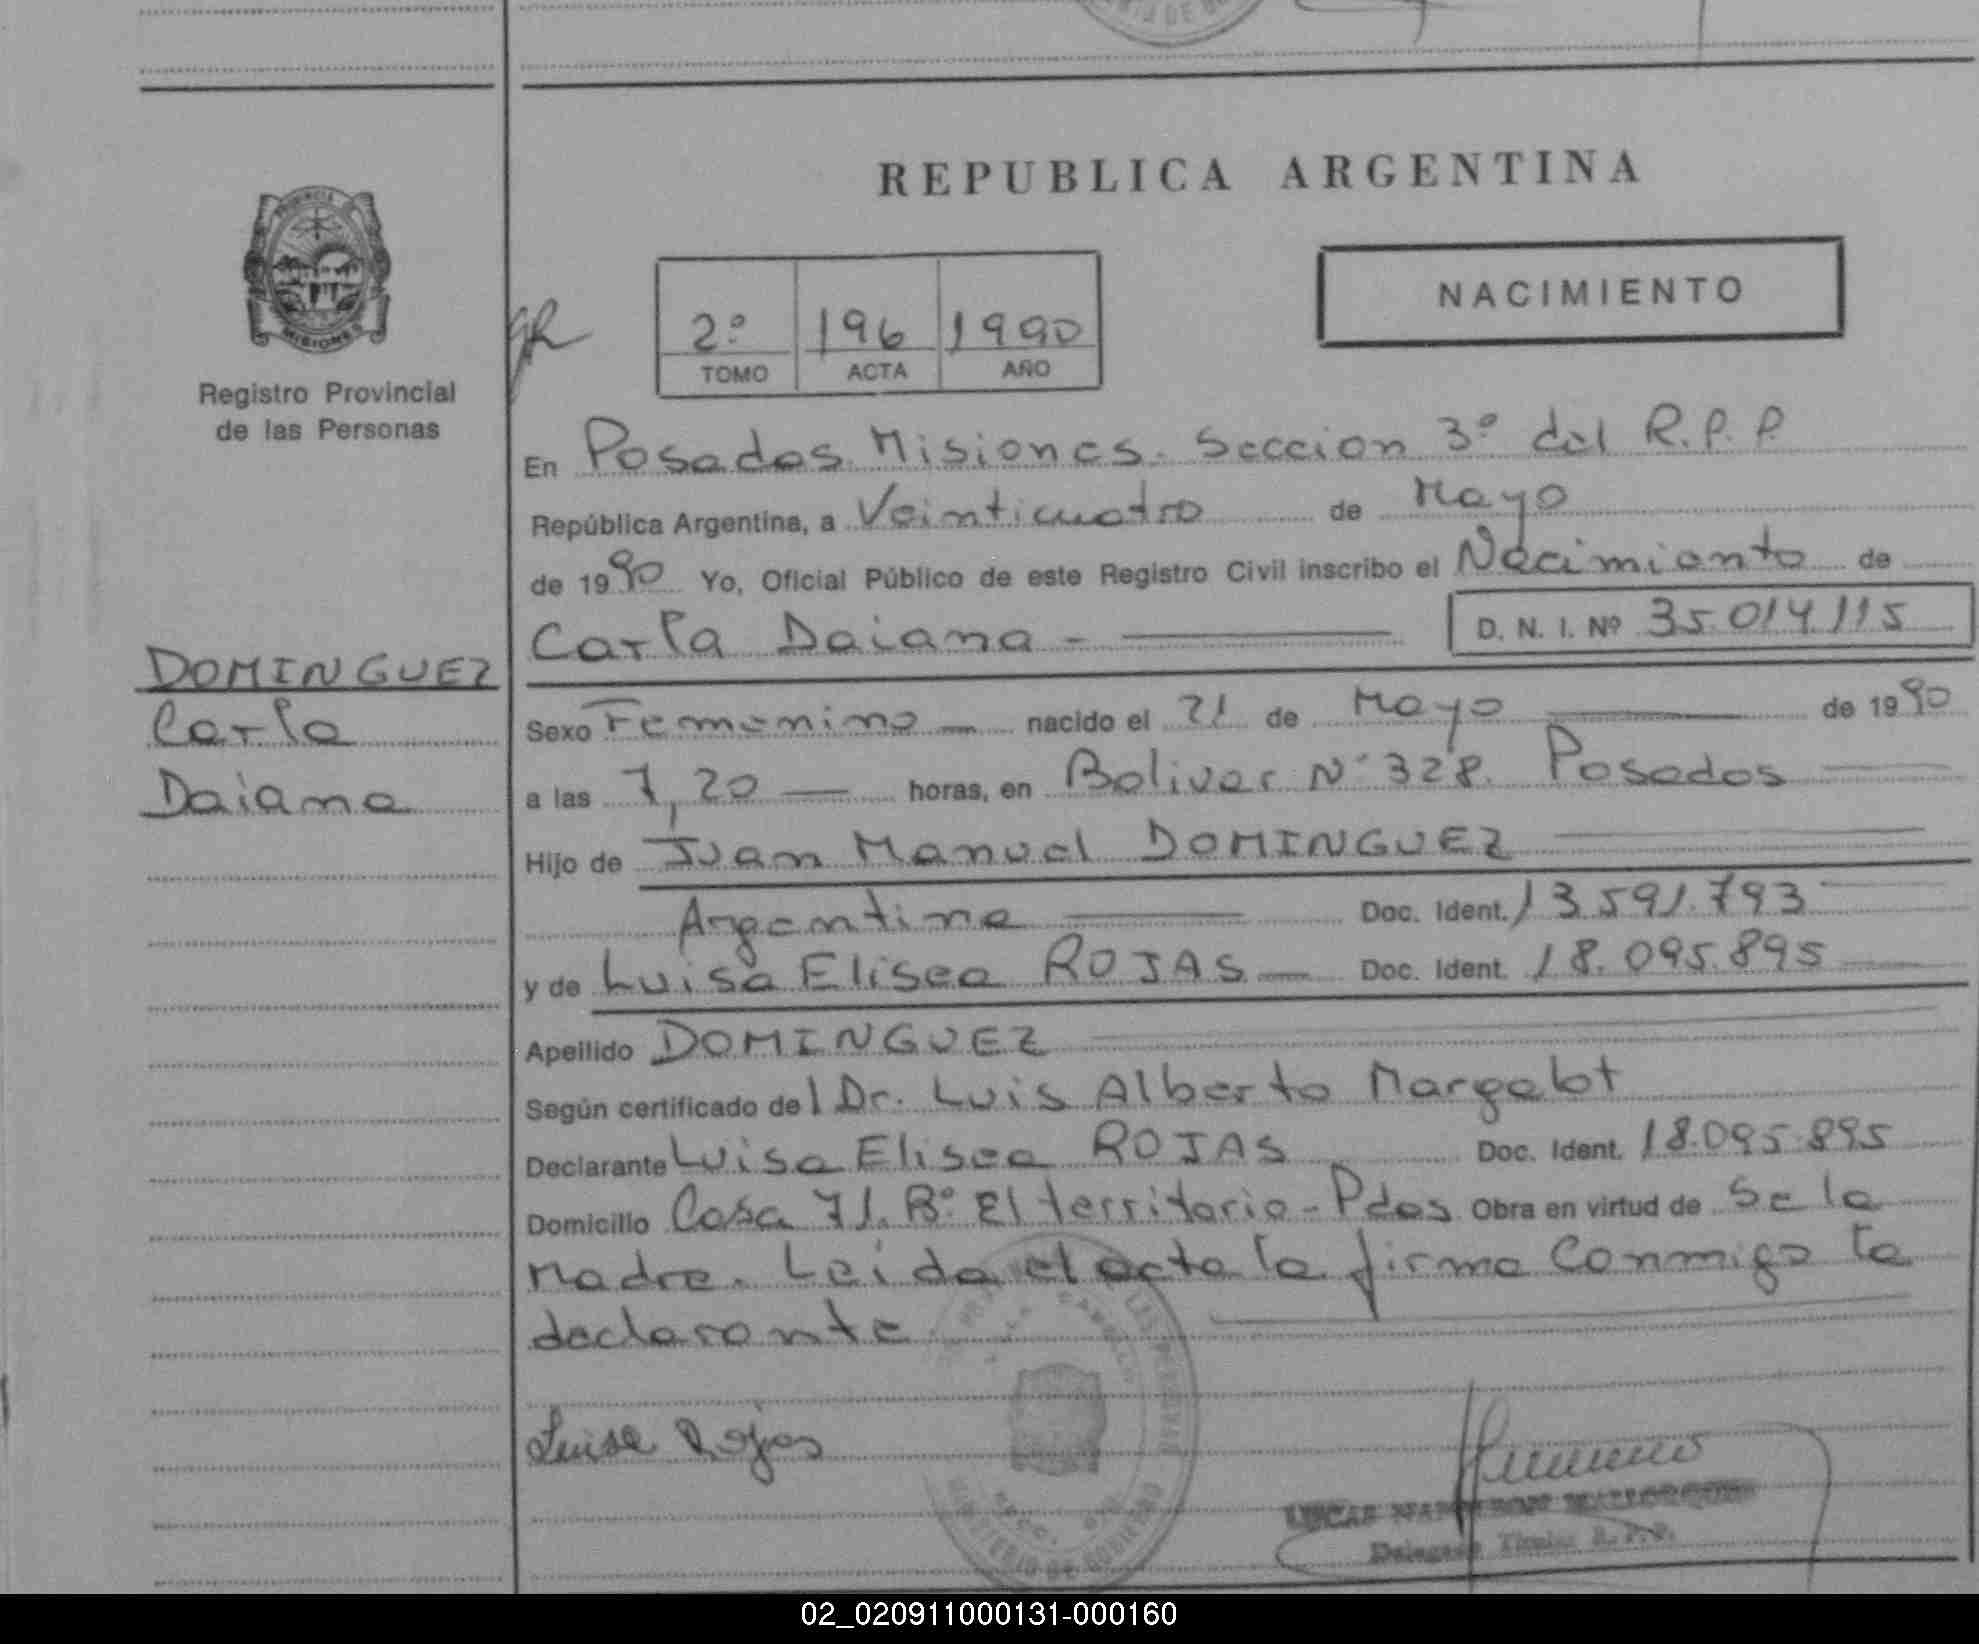 REPUBLICA ARGENTINA
PROVINCIA
MISIONES
Registro Provincial
de las Personas
2º 196 1990
TOMO ACTA AÑO
NACIMIENTO
En Posadas Misiones. Seccion 3º del R.P.P.
República Argentina, a Veinticuatro de Mayo
de 1990 Yo, Oficial Público de este Registro Civil inscribo el Nacimiento de
Carla Daiana - D. N. I. Nº 35.014.115
DOMINGUEZ
Carla
Daiana
Sexo Femenino nacido el 21 de Mayo de 1990
a las 7,20 horas, en Bolivar Nº 328. Posadas
Hijo de Juan Manuel DOMINGUEZ
Argentina Doc. Ident. 13.591.793
y de Luisa Elisea ROJAS Doc. Ident. 18.095.895
Apellido DOMINGUEZ
Según certificado del Dr. Luis Alberto Margalot
Declarante Luisa Elisea ROJAS Doc. Ident. 18.095.895
Domicilio Casa 71. Bº El territorio - Pdas Obra en virtud de Se la
Madre. Leida el acta la firma Conmigo la
declarante
Luisa Rojas
MINISTERIO DE GOBIERNO
Delegado Titular R.P.P.
02_020911000131-000160